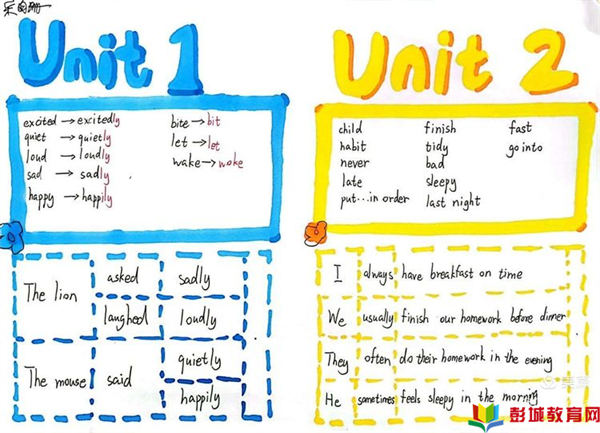 Unit 1
excited → excitedly
quiet → quietly
loud → loudly
sad → sadly
happy → happily
bite → bit
let → let
wake → woke
The lion
asked
sadly
laughed
loudly
The mouse
said
quietly
happily
Unit 2
child
habit
never
late
put...in order
finish
tidy
bad
sleepy
last night
fast
go into
I always have breakfast on time
We usually finish our homework before dinner
They often do their homework in the evening
He sometimes feels sleepy in the morning
彭城教育网